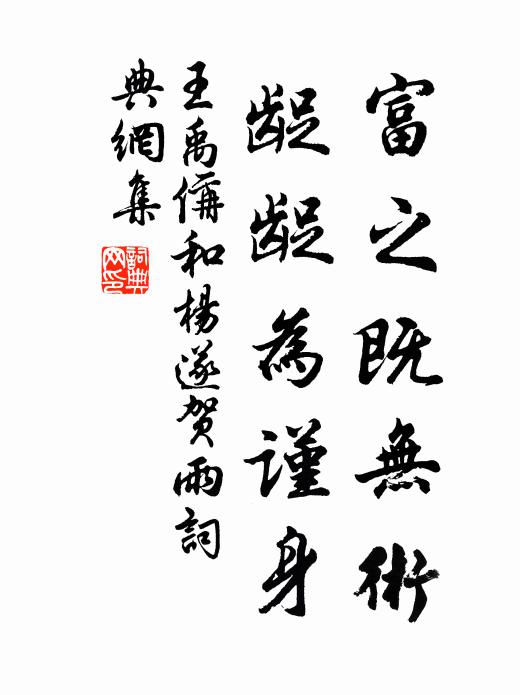 富之既無術
齪齪為謹身
王禹偁和楊遂贺雨詞
典網集
詞典網印